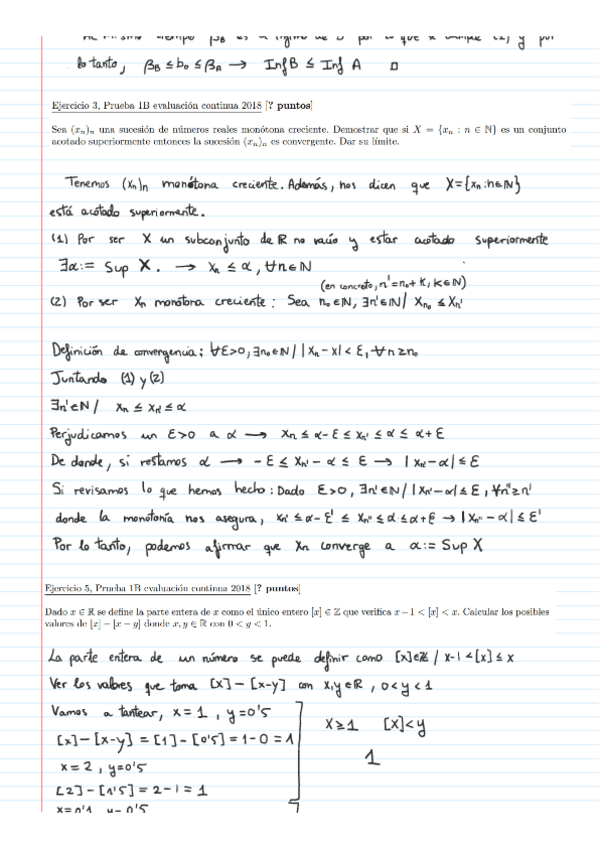 lo tanto, βB ≤ b₀ ≤ βA → Inf B ≤ Inf A □
Ejercicio 3, Prueba 1B evaluación continua 2018 [? puntos]
Sea (xₙ)ₙ una sucesión de números reales monótona creciente. Demostrar que si X = {xₙ : n ∈ ℕ} es un conjunto
acotado superiormente entonces la sucesión (xₙ)ₙ es convergente. Dar su límite.
Tenemos (xₙ)ₙ monótona creciente. Además, nos dicen que X={xₙ:n∈ℕ}
está acotado superiormente.
(1) Por ser X un subconjunto de ℝ no vacío y estar acotado superiormente
∃α:= Sup X. → xₙ ≤ α, ∀n∈ℕ
(en concreto, n'=n₀+k, k∈ℕ)
(2) Por ser xₙ monótona creciente: Sea n₀∈ℕ, ∃n'∈ℕ/ xₙ₀ ≤ xₙ'
Definición de convergencia: ∀ε>0, ∃n₀∈ℕ/ |xₙ - x| < ε, ∀n≥n₀
Juntando (1) y (2)
∃n'∈ℕ/ xₙ ≤ xₙ' ≤ α
Perjudicamos un ε>0 a α → xₙ ≤ α-ε ≤ xₙ' ≤ α ≤ α+ε
De donde, si restamos α → -ε ≤ xₙ' - α ≤ ε → |xₙ' - α| ≤ ε
Si revisamos lo que hemos hecho: Dado ε>0, ∃n'∈ℕ/ |xₙ' - α| ≤ ε, ∀n''≥n'
donde la monotonía nos asegura, xₙ' ≤ α-ε' ≤ xₙ'' ≤ α ≤ α+ε → |xₙ'' - α| ≤ ε'
Por lo tanto, podemos afirmar que xₙ converge a α:= Sup X
Ejercicio 5, Prueba 1B evaluación continua 2018 [? puntos]
Dado x ∈ ℝ se define la parte entera de x como el único entero [x] ∈ ℤ que verifica x − 1 < [x] < x. Calcular los posibles
valores de [x] − [x − y] donde x, y ∈ ℝ con 0 < y < 1.
La parte entera de un número se puede definir como [x]∈ℤ / x-1<[x]≤x
Ver los valores que toma [x]-[x-y] con x,y∈ℝ, 0<y<1
Vamos a tantear, x=1, y=0'5
x≥1 [x]<y
[x]-[x-y] = [1]-[0'5] = 1-0 = 1
1
x=2, y=0'5
[2]-[1'5] = 2-1 = 1
x=0'1 y=0'5